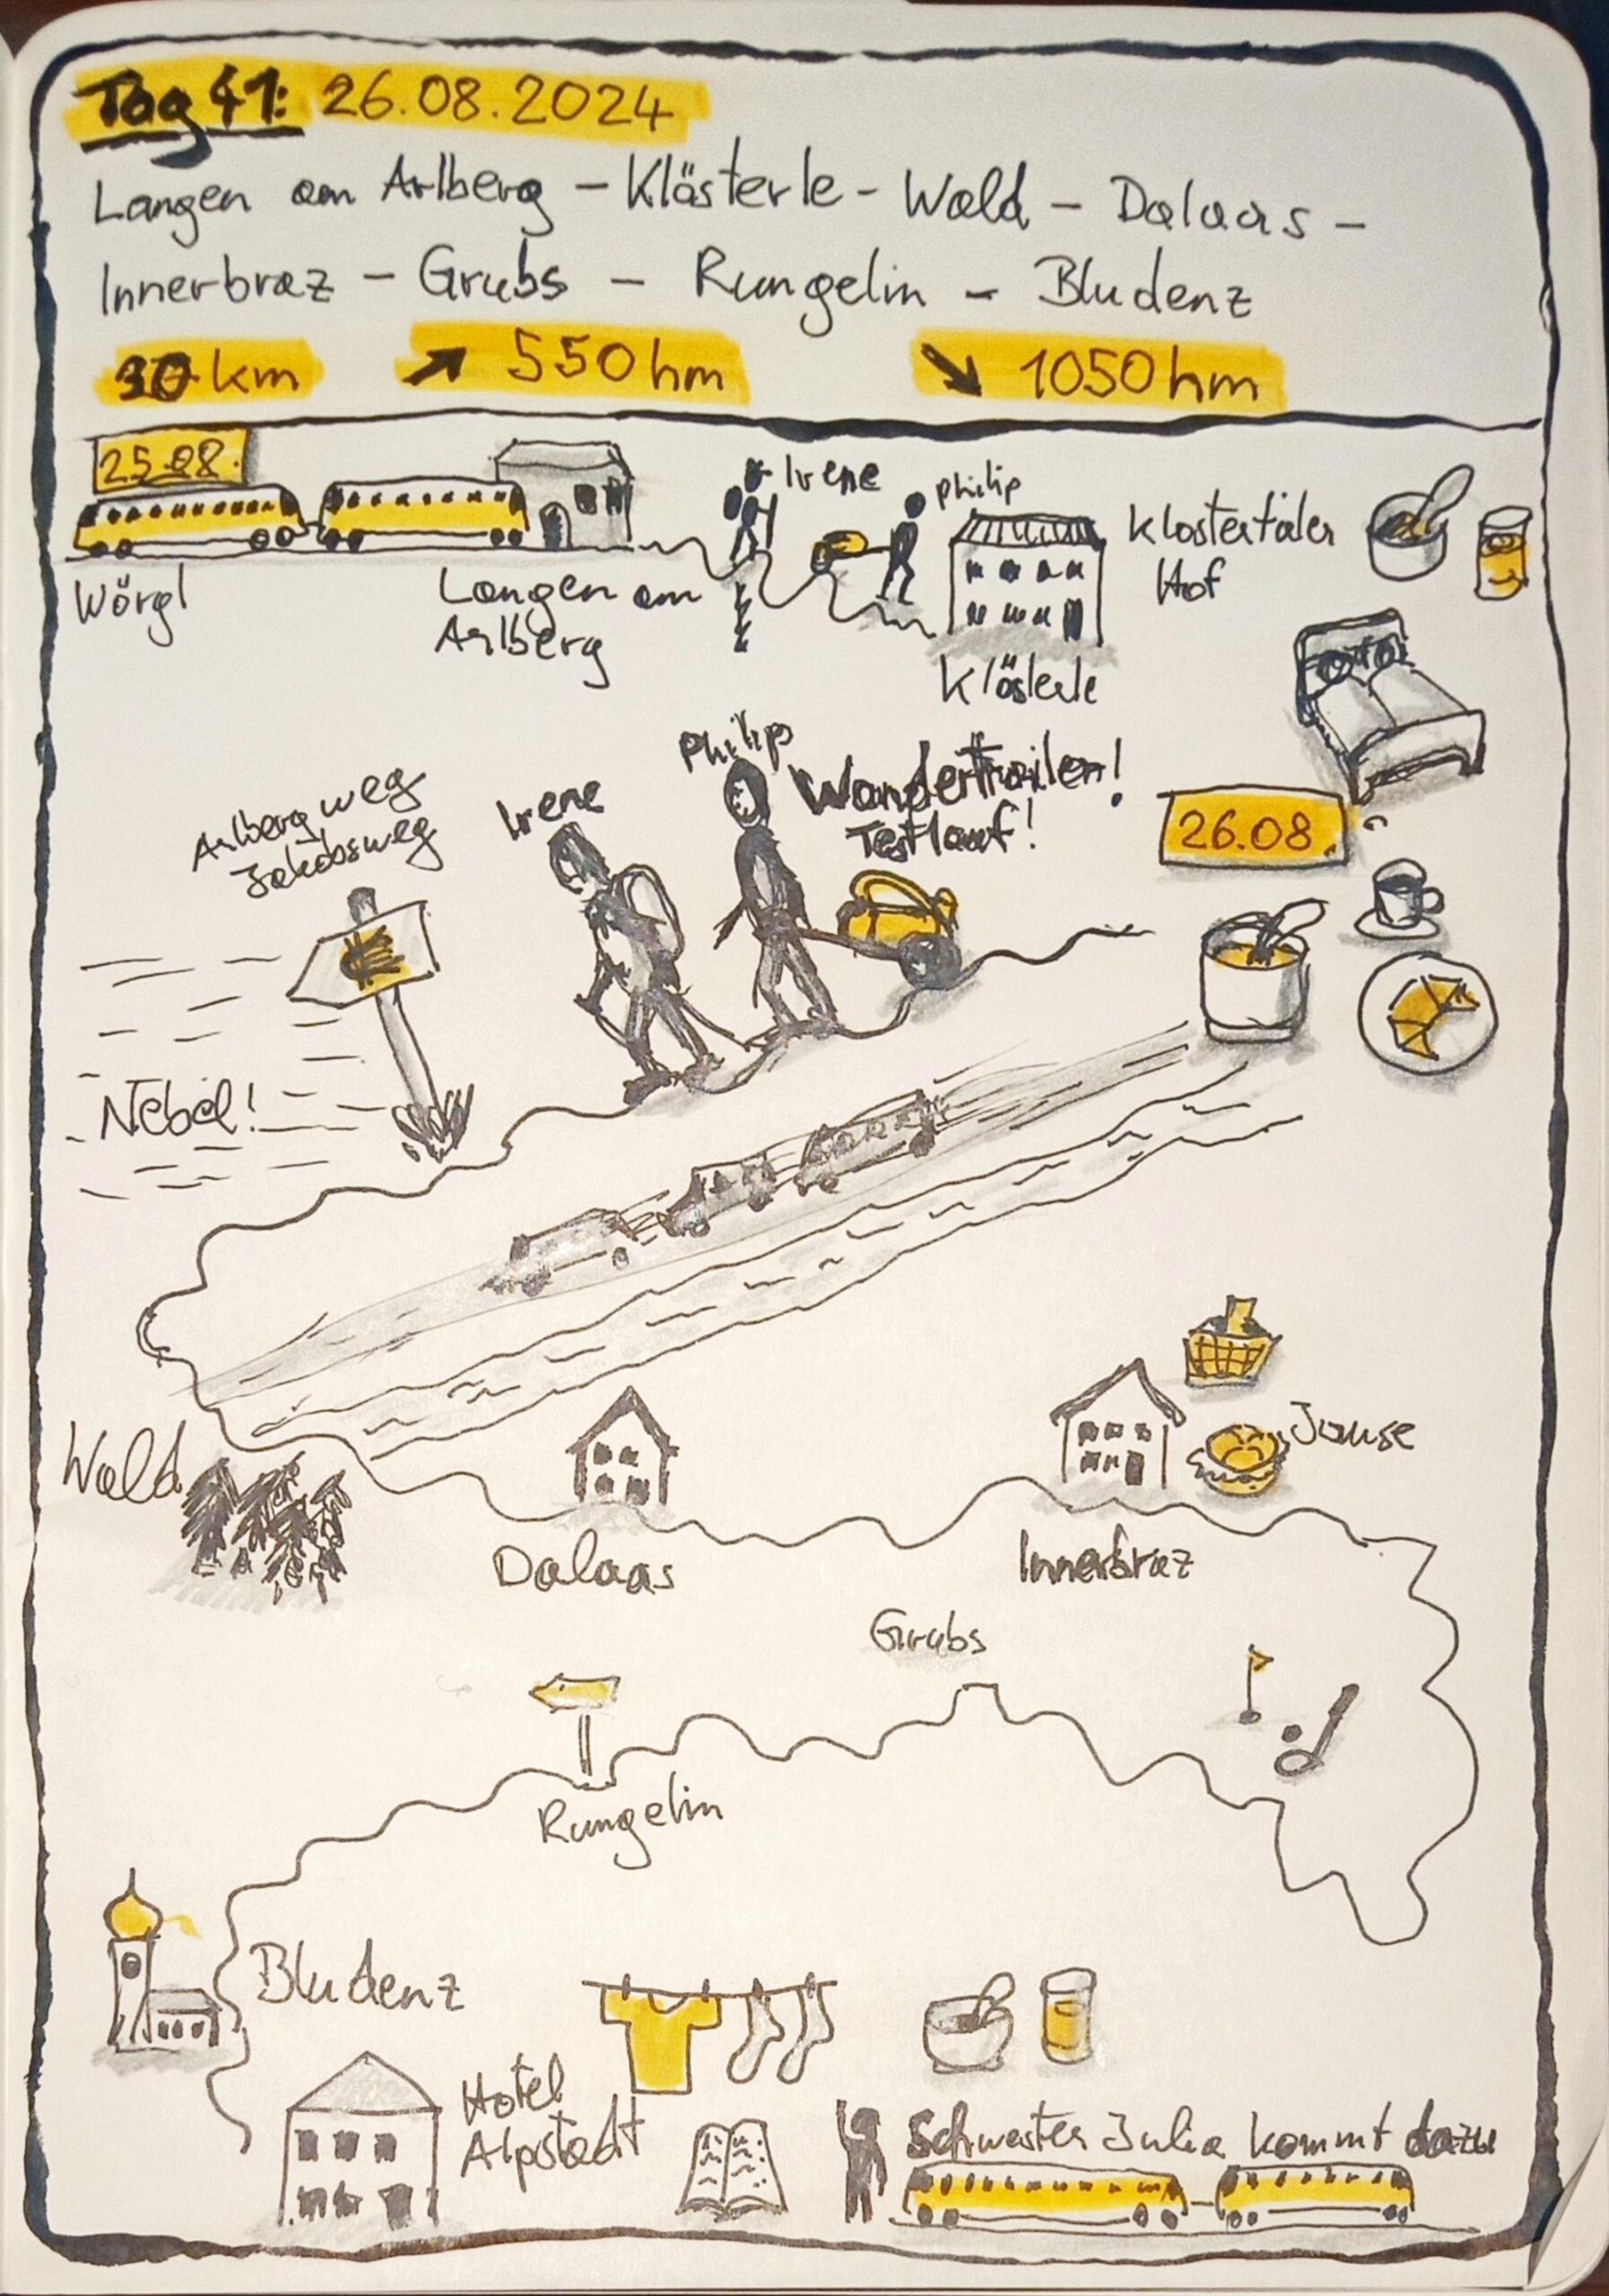 Tag 41: 26.08.2024
Langen am Arlberg – Klösterle – Wald – Dalaas –
Innerbraz – Grubs – Rungelin – Bludenz
30 km ↗ 550 hm ↘ 1050 hm
25.08.
Irene
Philip
Klostertaler
Hof
Wörgl
Langen am
Arlberg
Klösterle
Philip
Wandertrailer!
Testlauf!
Irene
Arlbergweg
Jakobsweg
26.08.
Nebel!
Jause
Wald
Dalaas
Innerbraz
Grubs
Rungelin
Bludenz
Hotel
Alpstadt
Schwester Julia kommt dazu